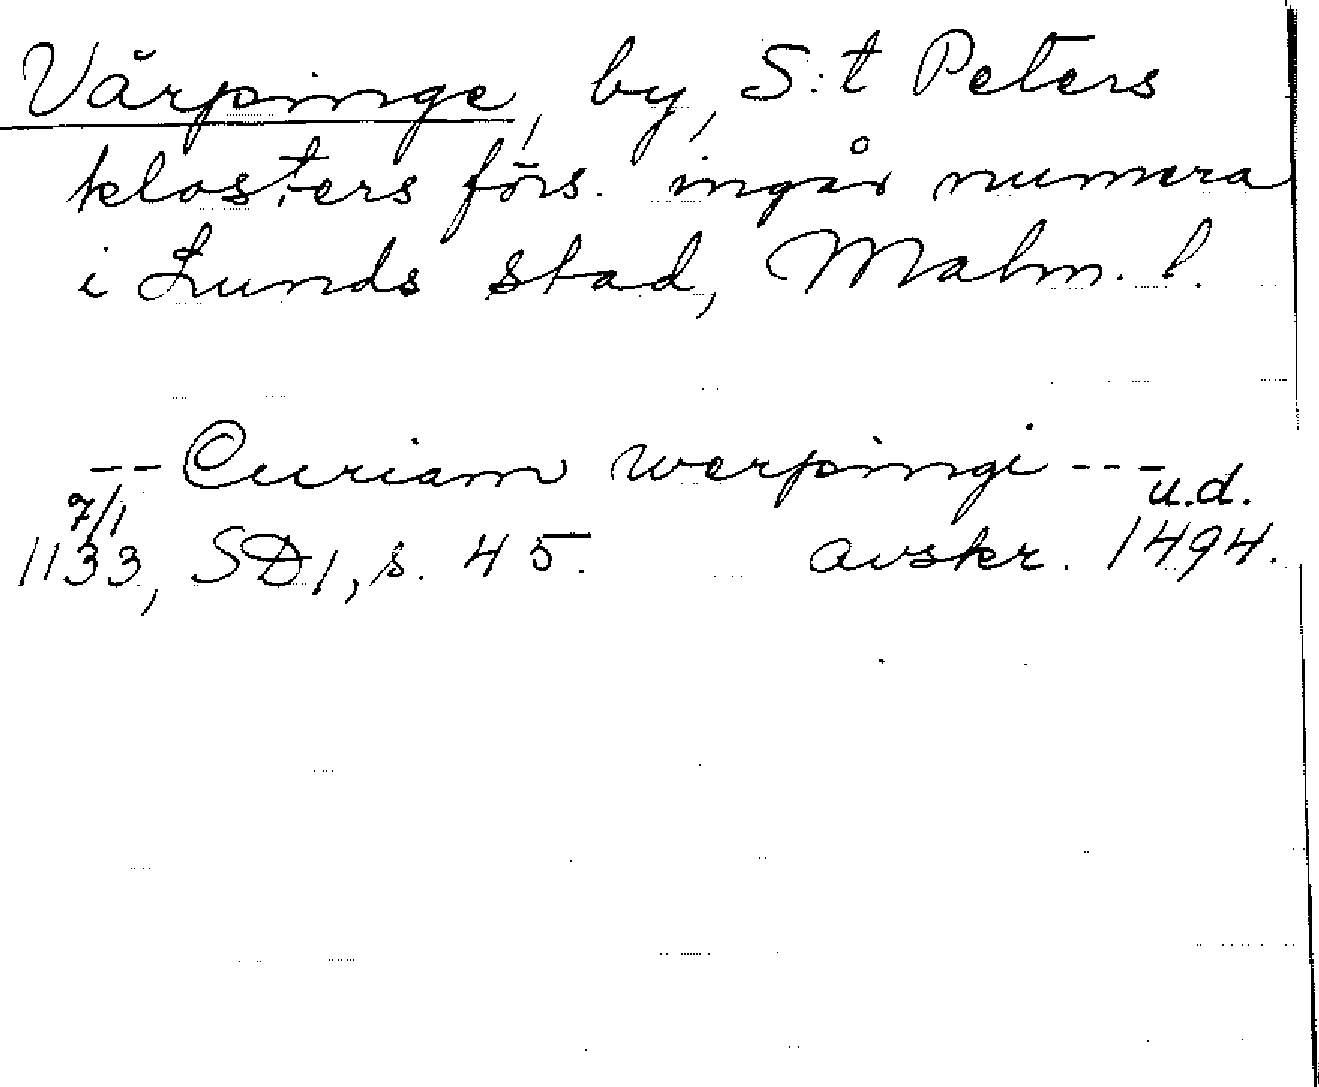 Värpinge, by, S:t Peters
klosters förs. ingår numera
i Lunds stad, Malm. l.
-- Curiam werpingi ---
7/1 u.d.
1133, SD1, s. 45. avskr. 1494.